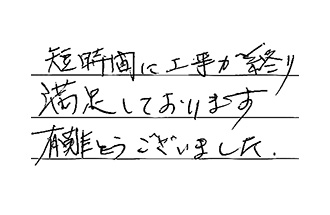 短時間に工事が終り
満足しております
有難とうございました.